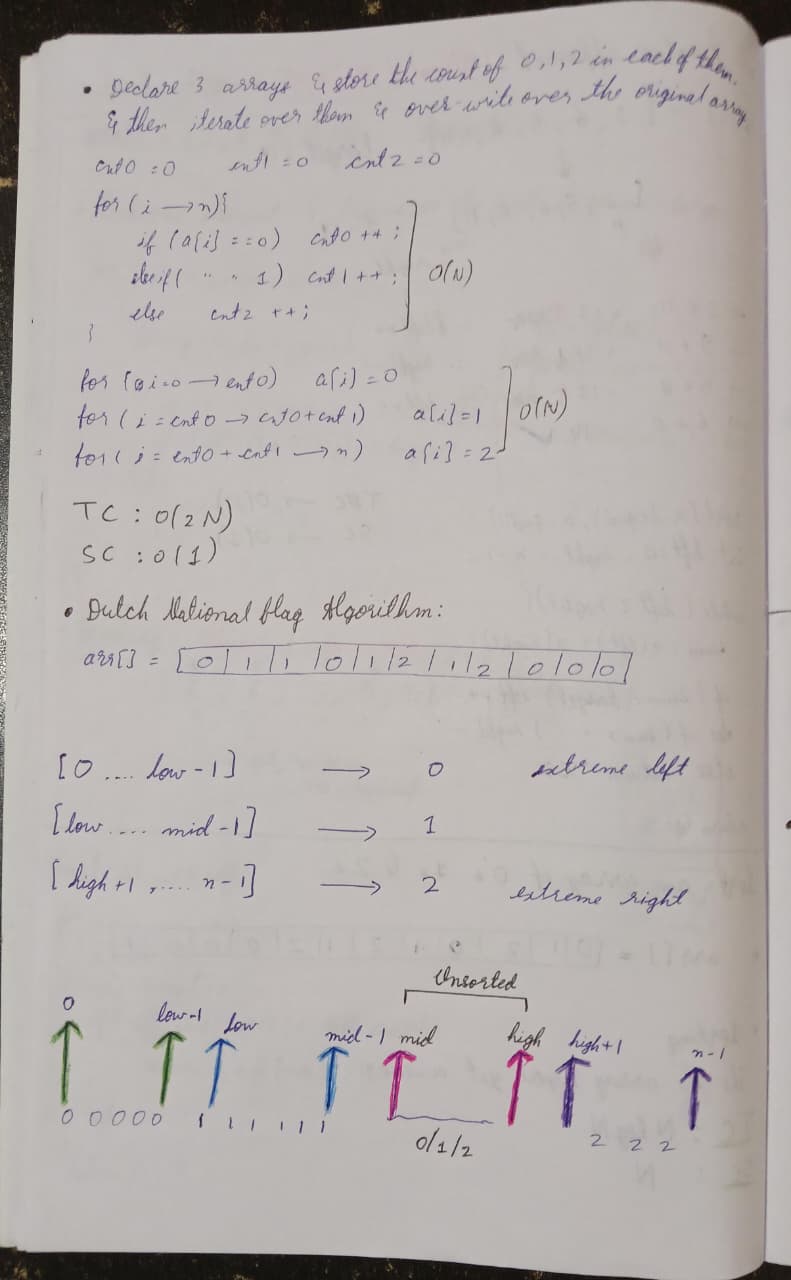 • Declare 3 arrays & store the count of 0,1,2 in each of them.
& then iterate over them & over-write over the original array.
cnt0 =0 cnt1 =0 cnt2 =0
for(i →n){
if (a[i] ==0) cnt0 ++ ;
else if ( " " 1) cnt 1 ++ ;
else cnt2 ++;
}
O(N)
for (i=0 → cnt0) a[i] =0
for (i = cnt0 → cnt0+cnt1) a[i]=1
for(i = cnt0 + cnt1 → n) a[i] = 2
O(N)
TC : O(2N)
SC : O(1)
• Dutch National flag Algorithm:
arr[] = [0|1|1|0|1|2|1|2|0|0|0]
[0 .... low-1] → 0 extreme left
[low .... mid-1] → 1
[high+1 ,.... n-1] → 2 extreme right
Unsorted
0 low-1 low mid-1 mid high high+1 n-1
0 0 0 0 0 1 1 1 1 1 1 0/1/2 2 2 2